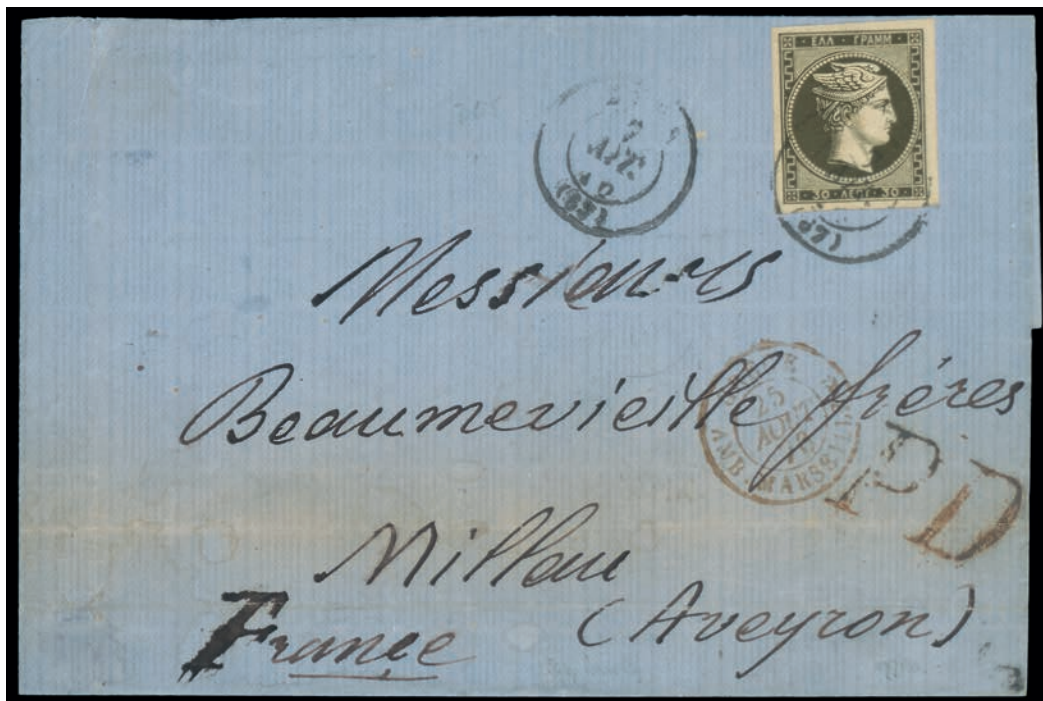 ΕΛΛ · ΓΡΑΜΜ
30 · ΛΕΠΤ · 30
Messieurs
Beaumevieille frères
25
AOUT
AMB. MARSEILLE
PD
Millau
(Aveyron)
France